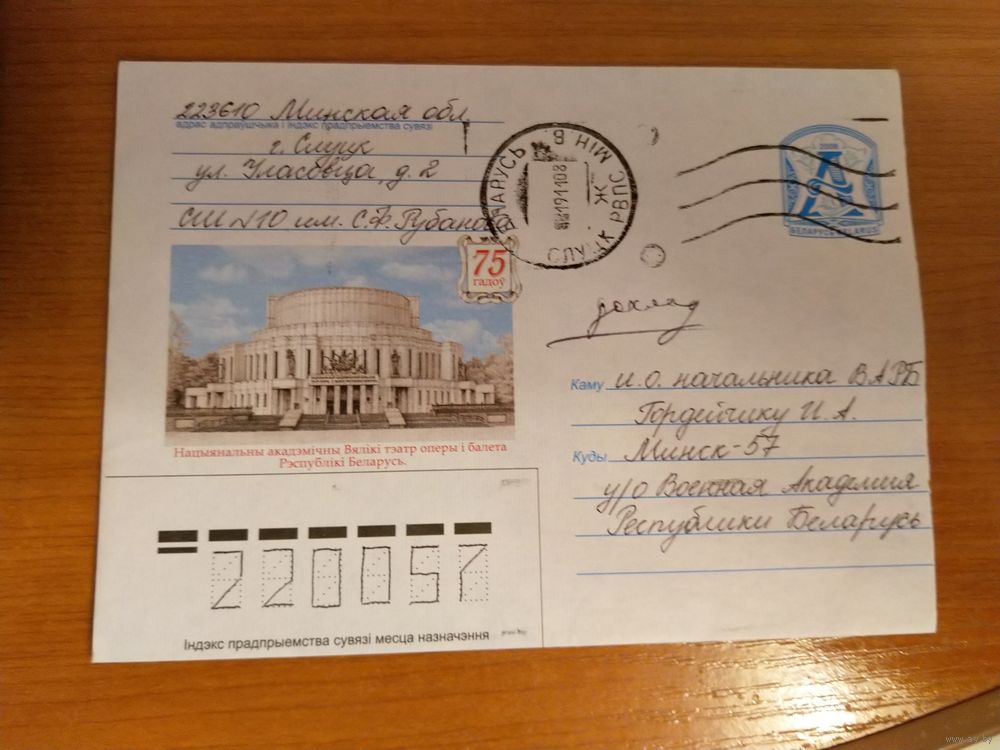 223610 Минская обл.
адрас адпраўшчыка і індэкс прадпрыемства сувязі
г. Слуцк
ул. Уласовца, д. 2
СШ №10 им. С.Ф. Рубанова
БЕЛАРУСЬ МІН В.
191108
Ж
СЛУЦК РВПС
2008
А
БЕЛАРУСЬ BELARUS
75
гадоў
доклад
Нацыянальны акадэмічны Вялікі тэатр оперы і балета
Рэспублікі Беларусь.
Каму и.о. начальника ВАРБ
Гордейчику И.А.
Куды Минск-57
у/о Военная Академия
Республики Беларусь
220057
Індэкс прадпрыемства сувязі месца назначэння
www.ay.by